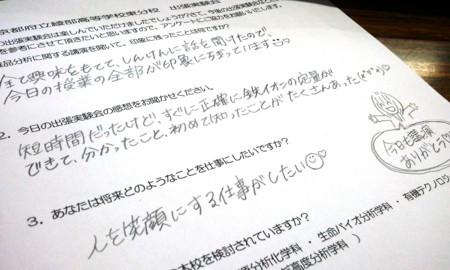 京都府立綾部高等学校東分校 出張実験会
の出張実験会は楽しんでいただけましたでしょうか？さて、今後の出張実験会の
を参考にさせて頂きたいと思いますので、アンケートにご協力をお願いいたします。
食品分析に関する講演を聞いて、印象に残ったことは何ですか？
全て興味をもてて、しんけんに話を聞けたので、
今日の授業の全部が印象にのこっています
2. 今日の出張実験会の感想をお聞かせください。
短時間だったけど、すぐに正確に鉄イオンの定量が
できて、分かったこと、初めて知ったことがたくさんあった
今日も講演
ありがとう
3. あなたは将来どのようなことを仕事にしたいですか？
人を笑顔にする仕事がしたい
本校を検討されていますか？
分析化学科 ・ 生命バイオ分析学科 ・ 有機テクノロジー
高度分析学科 ）